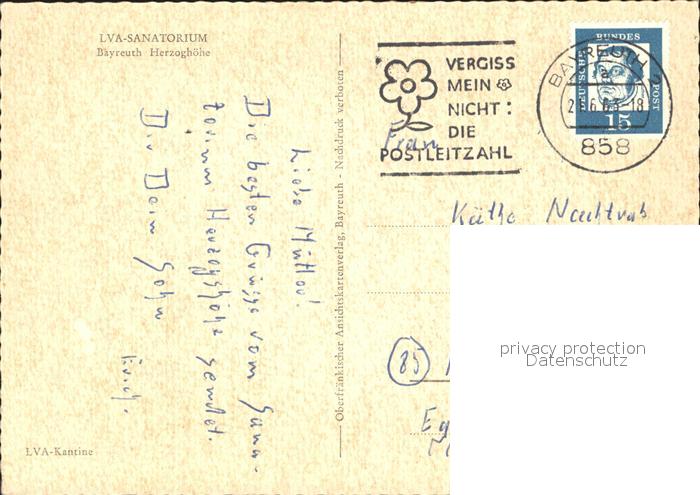 LVA-SANATORIUM
Bayreuth Herzoghöhe
Liebe Mutter!
Die besten Grüsse vom Sana-
torium Herzogshöhe sendet
Dir Dein Sohn
Erich.
LVA-Kantine
Oberfränkischer Ansichtskartenverlag, Bayreuth - Nachdruck verboten
VERGISS
MEIN
NICHT:
DIE
POSTLEITZAHL
BAYREUTH 2
858
DEUTSCHE BUNDESPOST
15
Frau
Käthe
(85)
privacy protection
Datenschutz